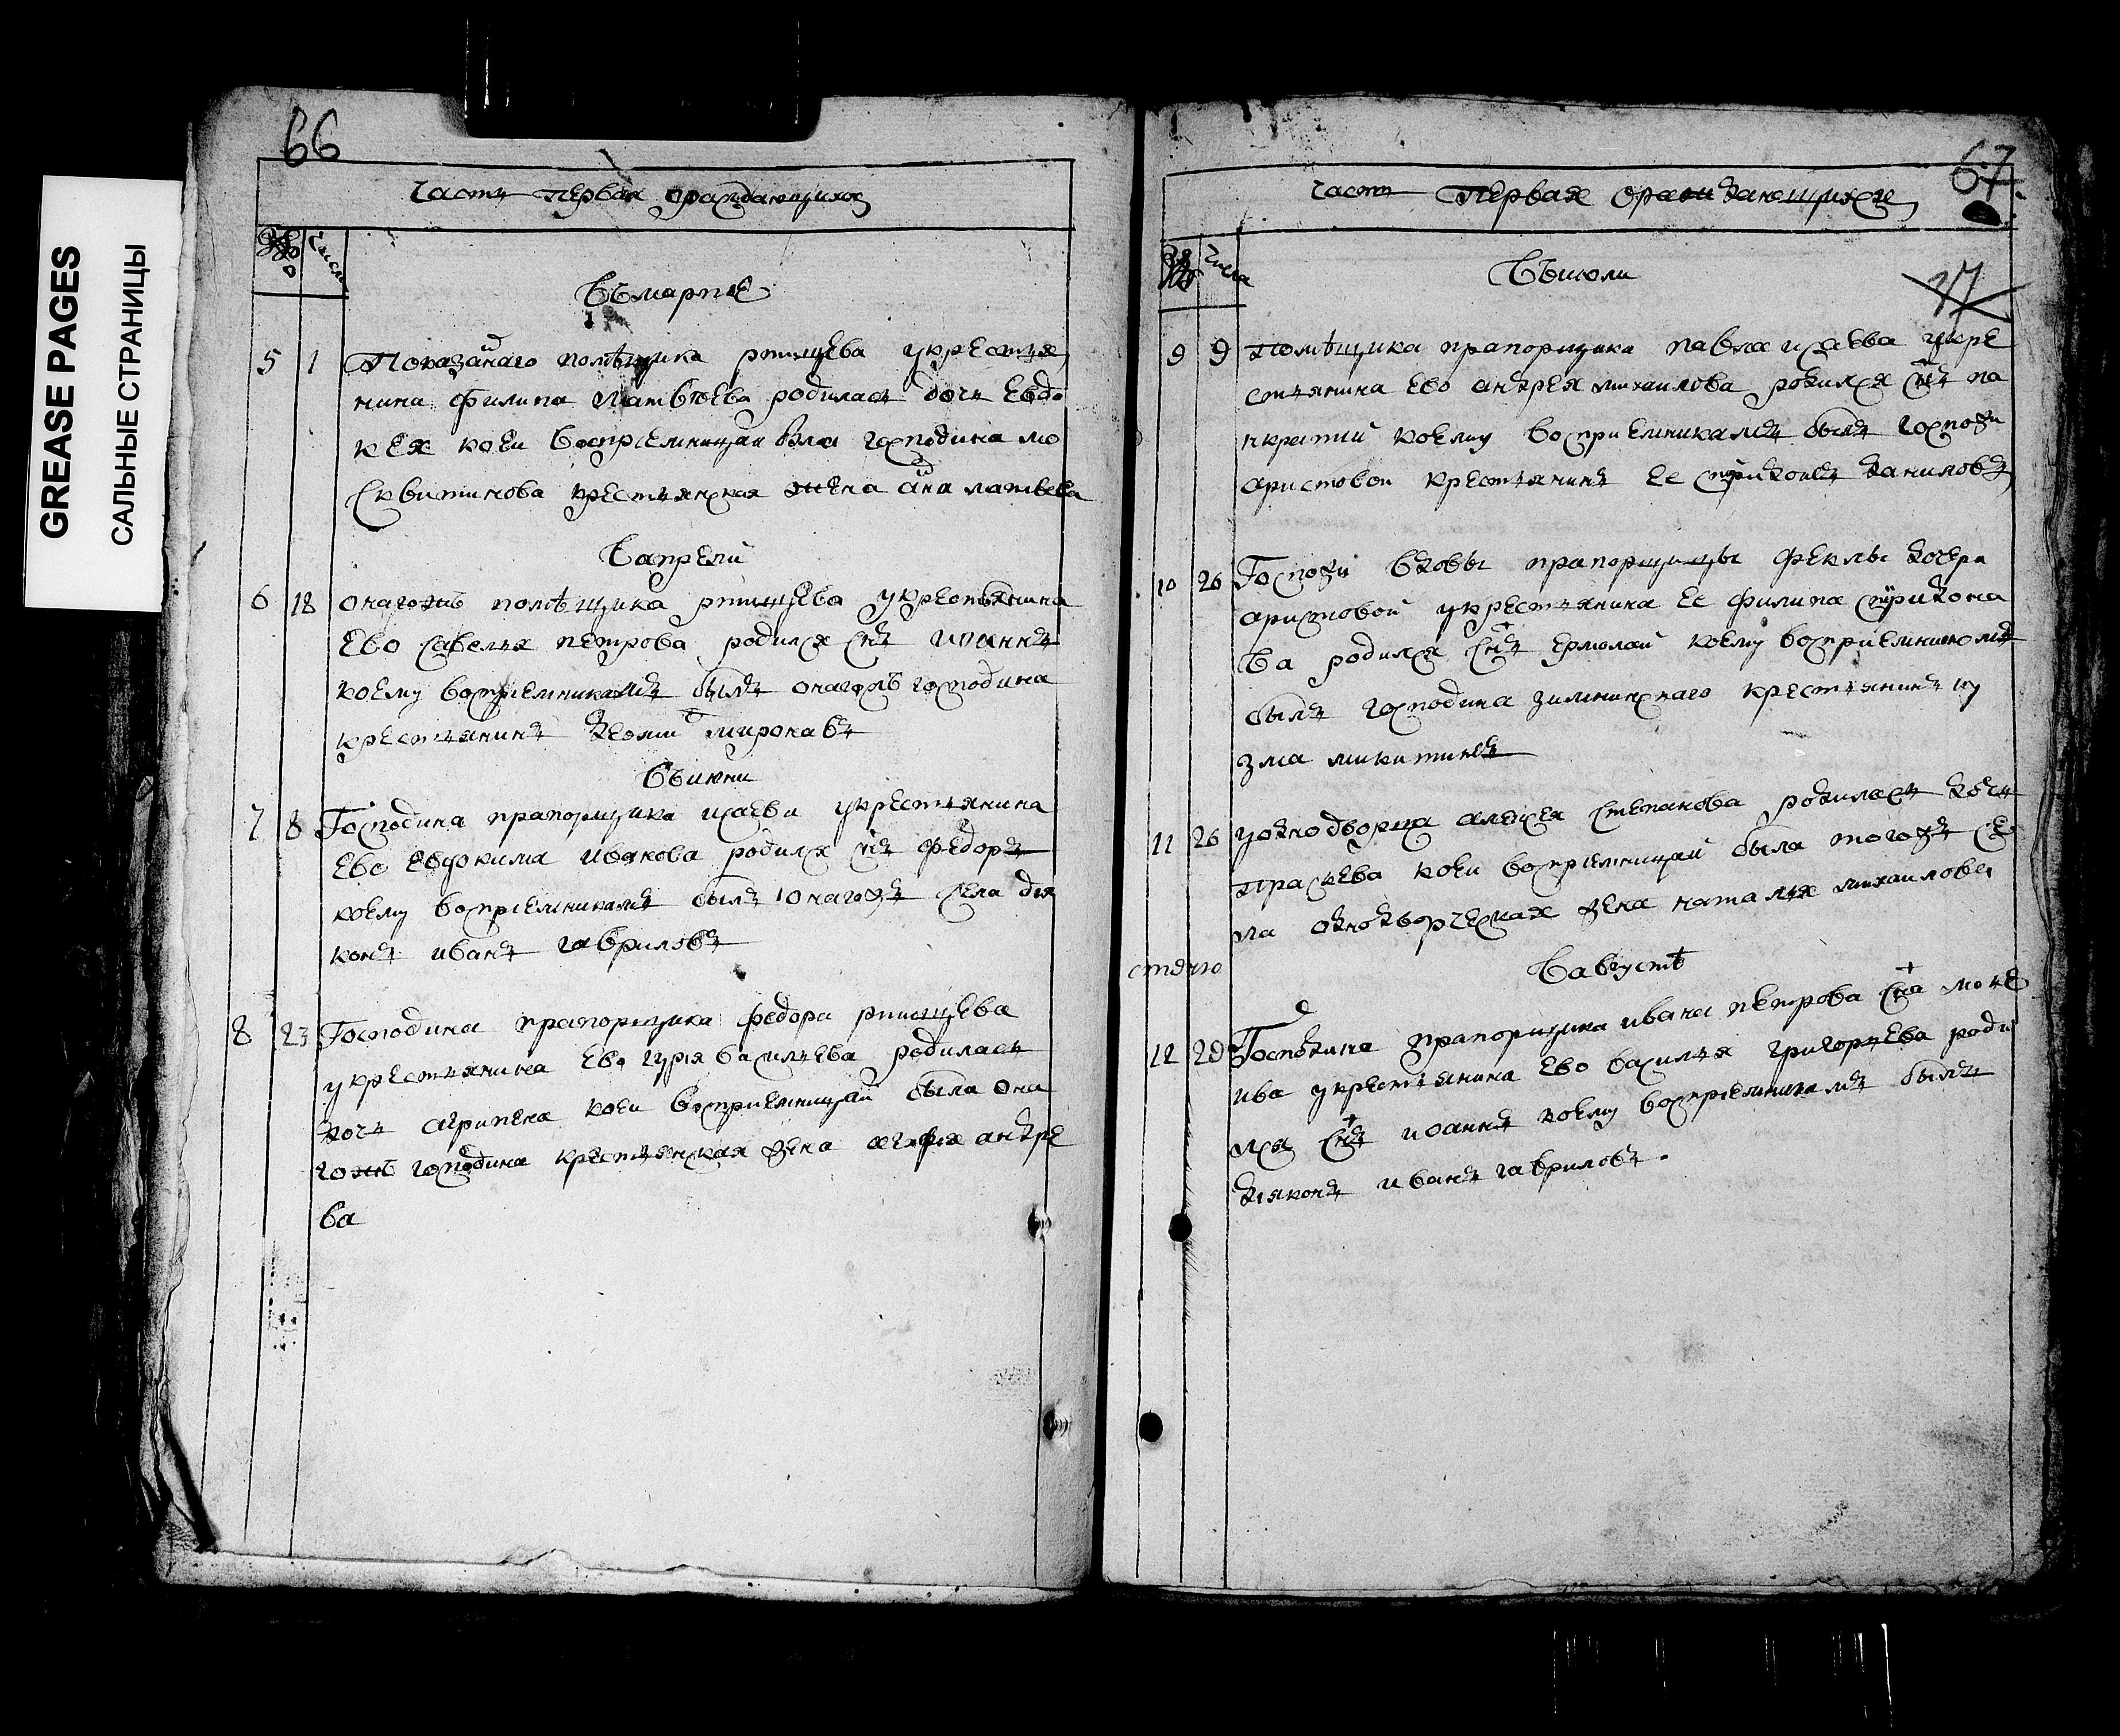 GREASE PAGES
САЛЬНЫЕ СТРАНИЦЫ
66
часть первая ораждающихся
число
Въмарте
5 1 Показанаго помѣщика ртищева укрестья
нина филипа матвѣева родилась дочь Евдо
кея коеи восприемницаи была господина мо
сквитинова крестьянская жена ана матвева
Вапрели
6 18 онагожъ помѣщика ртищева укрестьянина
Ево савелья петрова родился снъ иоаннъ
коему восприемникамъ былъ онагожъ господина
крестьянинъ миронавъ
Въиюни
7 8 Господина прапорщика исаева укрестьянина
Ево Евдокима ивакова родился снъ федоръ
коему восприемникамъ былъ онагожъ села дья
конъ иванъ гавриловъ
8 23 Господина прапорщика федора ртищева
укрестьянина Ево гурья васильева родилась
дочь агрипена коеи восприемницаи была она
гожъ господина крестьянская жена агафья андре
ва
67
часть первая ораждающихся
числа
Въиюли
37
9 9 Помѣщика прапорщика павла исаева укре
стьянина Ево андрея михаилова родился снъ па
нкратии коему восприемникамъ былъ госпожи
аристовои крестьянинъ Ее спиридонъ даниловъ
10 26 Госпожи вдовы прапорщицы феклы
аристовой укрестьянина Ее филипа спиридона
ва родился снъ Ермолаи коему восприемникомъ
былъ господина зиминскаго крестьянинъ ку
зма микитинъ
11 26 уоднодворца алексея степанова родилась дочь
праскева коеи восприемницаи была тогожъ се
ла однодворческая жена наталья михаилова
Вавгустѣ
12 29 Господина прапорщика ивана петрова сна
ива укрестьянина Ево василья григорьева роди
лся снъ иоаннъ коему восприемникамъ былъ
дьяконъ иванъ гавриловъ.